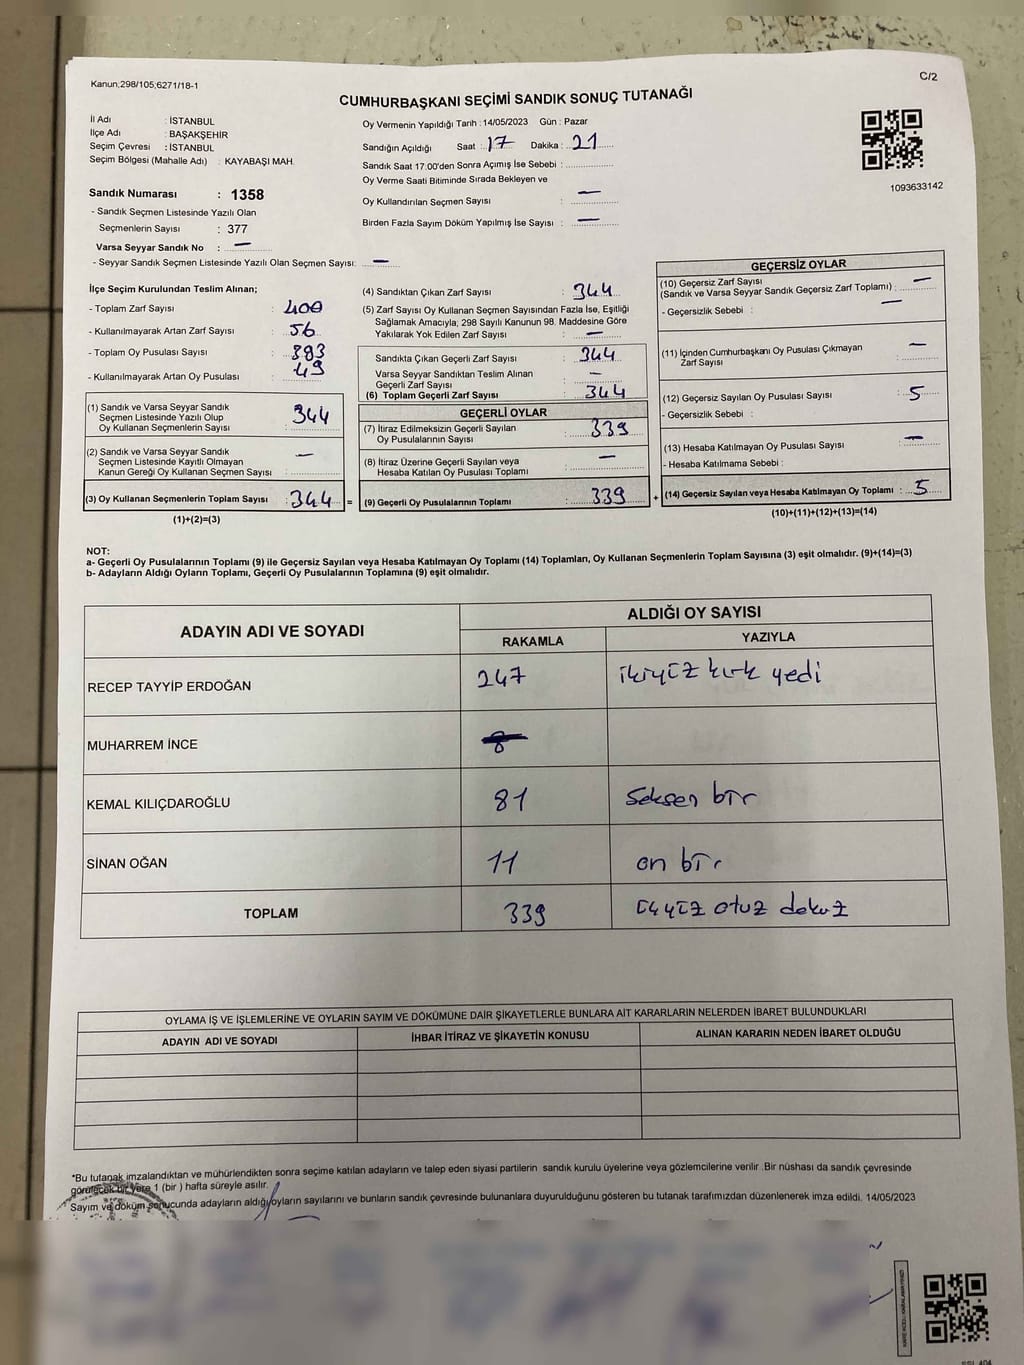 Kanun;298/105;6271/18-1
C/2
CUMHURBAŞKANI SEÇİMİ SANDIK SONUÇ TUTANAĞI
İl Adı : İSTANBUL
İlçe Adı : BAŞAKŞEHİR
Seçim Çevresi : İSTANBUL
Seçim Bölgesi (Mahalle Adı) : KAYABAŞI MAH.
Sandık Numarası : 1358
- Sandık Seçmen Listesinde Yazılı Olan
Seçmenlerin Sayısı : 377
Varsa Seyyar Sandık No : —
- Seyyar Sandık Seçmen Listesinde Yazılı Olan Seçmen Sayısı: —
Oy Vermenin Yapıldığı Tarih : 14/05/2023 Gün : Pazar
Sandığın Açıldığı Saat : 17 Dakika : 21
Sandık Saat 17.00'den Sonra Açımış İse Sebebi :
Oy Verme Saati Bitiminde Sırada Bekleyen ve
Oy Kullandırılan Seçmen Sayısı : —
Birden Fazla Sayım Döküm Yapılmış İse Sayısı : —
1093633142
İlçe Seçim Kurulundan Teslim Alınan;
- Toplam Zarf Sayısı : 400
- Kullanılmayarak Artan Zarf Sayısı : 56
- Toplam Oy Pusulası Sayısı : 393
- Kullanılmayarak Artan Oy Pusulası : 49
(1) Sandık ve Varsa Seyyar Sandık
Seçmen Listesinde Yazılı Olup
Oy Kullanan Seçmenlerin Sayısı : 344
(2) Sandık ve Varsa Seyyar Sandık
Seçmen Listesinde Kayıtlı Olmayan
Kanun Gereği Oy Kullanan Seçmen Sayısı : —
(3) Oy Kullanan Seçmenlerin Toplam Sayısı : 344 =
(1)+(2)=(3)
(4) Sandıktan Çıkan Zarf Sayısı : 344
(5) Zarf Sayısı Oy Kullanan Seçmen Sayısından Fazla İse, Eşitliği
Sağlamak Amacıyla; 298 Sayılı Kanunun 98. Maddesine Göre
Yakılarak Yok Edilen Zarf Sayısı : —
Sandıkta Çıkan Geçerli Zarf Sayısı : 344
Varsa Seyyar Sandıktan Teslim Alınan
Geçerli Zarf Sayısı : —
(6) Toplam Geçerli Zarf Sayısı : 344
GEÇERLİ OYLAR
(7) İtiraz Edilmeksizin Geçerli Sayılan
Oy Pusulalarının Sayısı : 339
(8) İtiraz Üzerine Geçerli Sayılan veya
Hesaba Katılan Oy Pusulası Toplamı : —
(9) Geçerli Oy Pusulalarının Toplamı : 339 +
GEÇERSİZ OYLAR
(10) Geçersiz Zarf Sayısı
(Sandık ve Varsa Seyyar Sandık Geçersiz Zarf Toplamı) : —
- Geçersizlik Sebebi : —
(11) İçinden Cumhurbaşkanı Oy Pusulası Çıkmayan
Zarf Sayısı : —
(12) Geçersiz Sayılan Oy Pusulası Sayısı : 5
- Geçersizlik Sebebi :
(13) Hesaba Katılmayan Oy Pusulası Sayısı : —
- Hesaba Katılmama Sebebi :
(14) Geçersiz Sayılan veya Hesaba Katılmayan Oy Toplamı : 5
(10)+(11)+(12)+(13)=(14)
NOT:
a- Geçerli Oy Pusulalarının Toplamı (9) ile Geçersiz Sayılan veya Hesaba Katılmayan Oy Toplamı (14) Toplamları, Oy Kullanan Seçmenlerin Toplam Sayısına (3) eşit olmalıdır. (9)+(14)=(3)
b- Adayların Aldığı Oyların Toplamı, Geçerli Oy Pusulalarının Toplamına (9) eşit olmalıdır.
ADAYIN ADI VE SOYADI
ALDIĞI OY SAYISI
RAKAMLA YAZIYLA
RECEP TAYYİP ERDOĞAN 247 ikiyüz kırk yedi
MUHARREM İNCE
KEMAL KILIÇDAROĞLU 81 Seksen bir
SİNAN OĞAN 11 on bir
TOPLAM 339 üçyüz otuz dokuz
OYLAMA İŞ VE İŞLEMLERİNE VE OYLARIN SAYIM VE DÖKÜMÜNE DAİR ŞİKAYETLERLE BUNLARA AİT KARARLARIN NELERDEN İBARET BULUNDUKLARI
ADAYIN ADI VE SOYADI İHBAR İTİRAZ VE ŞİKAYETİN KONUSU ALINAN KARARIN NEDEN İBARET OLDUĞU
*Bu tutanak imzalandıktan ve mühürlendikten sonra seçime katılan adayların ve talep eden siyasi partilerin sandık kurulu üyelerine veya gözlemcilerine verilir .Bir nüshası da sandık çevresinde
görülecek bir yere 1 (bir ) hafta süreyle asılır.
Sayım ve döküm sonucunda adayların aldığı oyların sayılarını ve bunların sandık çevresinde bulunanlara duyurulduğunu gösteren bu tutanak tarafımızdan düzenlenerek imza edildi. 14/05/2023